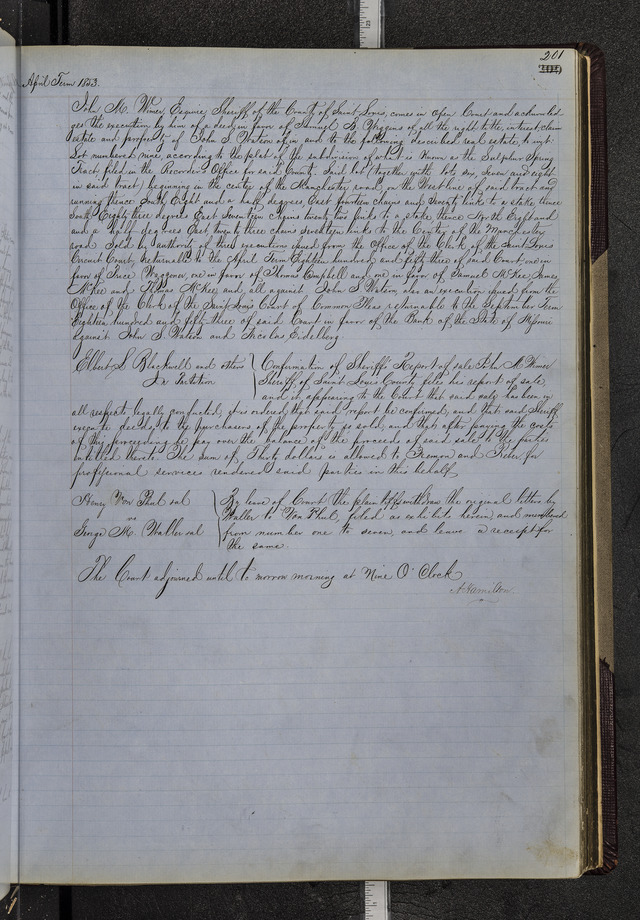 201
April Term 1853.
John M. Wimer, Esquire, Sheriff of the County of Saint Louis, comes in open Court and acknowled
ges the execution by him of a deed in favor of Samuel B. Wiggins of all the right to the, interest claim
estate and property of John S Watson of in and to the following described real estate, to wit:
Lot numbered nine, according to the plat of the subdivision of what is known as the Sulphur Spring
Tract, filed in the Recorders Office for said County. Said lot (together with lots six, seven and eight
in said tract) beginning in the center of the Manchester road, on the West line of said tract and
running thence South Eight and a half degrees, East fourteen chains and seventy links to a stake thence
South Eighty three degrees East Seventeen chains twenty two links to a stake, thence North Eight and
and a half degrees East, twenty three chains seventeen links to the Center of the Manchester
road. Sold by authority of three executions issued from the Office of the Clerk of the Saint Louis
Circuit Court, returnable to the April Term Eighteen hundred and fifty three of said Court one in
favor of Waggoner, one in favor of Thomas Campbell and one in favor of Samuel McKee, James
McKee and Thomas McKee and all against John S Watson, also an execution issued from the
Office of the Clerk of the Saint Louis Court of Common Pleas returnable to the September Term
Eighteen hundred and fifty three of said Court in favor of the Bank of the State of Missouri
against John S Watson and Nicolas Eidelberg
Elbert S Blackwell and others
In Partition
Confirmation of Sheriffs Report of sale John M Wimer
Sheriff of Saint Louis County files his report of sale
and it appearing to the Court that said sale has been in
all respects legally conducted, it is ordered that said report be confirmed, and that said Sheriff
execute deeds to the purchasers of the property so sold, and that after paying the costs
of this proceeding he pay over the balance of the proceeds of said sale to the parties
entitled thereto. The sum of Thirty dollars is allowed to and for
professional services rendered said parties in this behalf
Henry Von Phul et al
vs
George M. Waller et al
By leave of Court the plaintiffs withdraw the original letters by
Waller to Von Phul, filed as exhibits herein, and numbered
from number one to seven, and leave a receipt for
the same.
The Court adjourned until to morrow morning at Nine O'Clock
A Hamilton